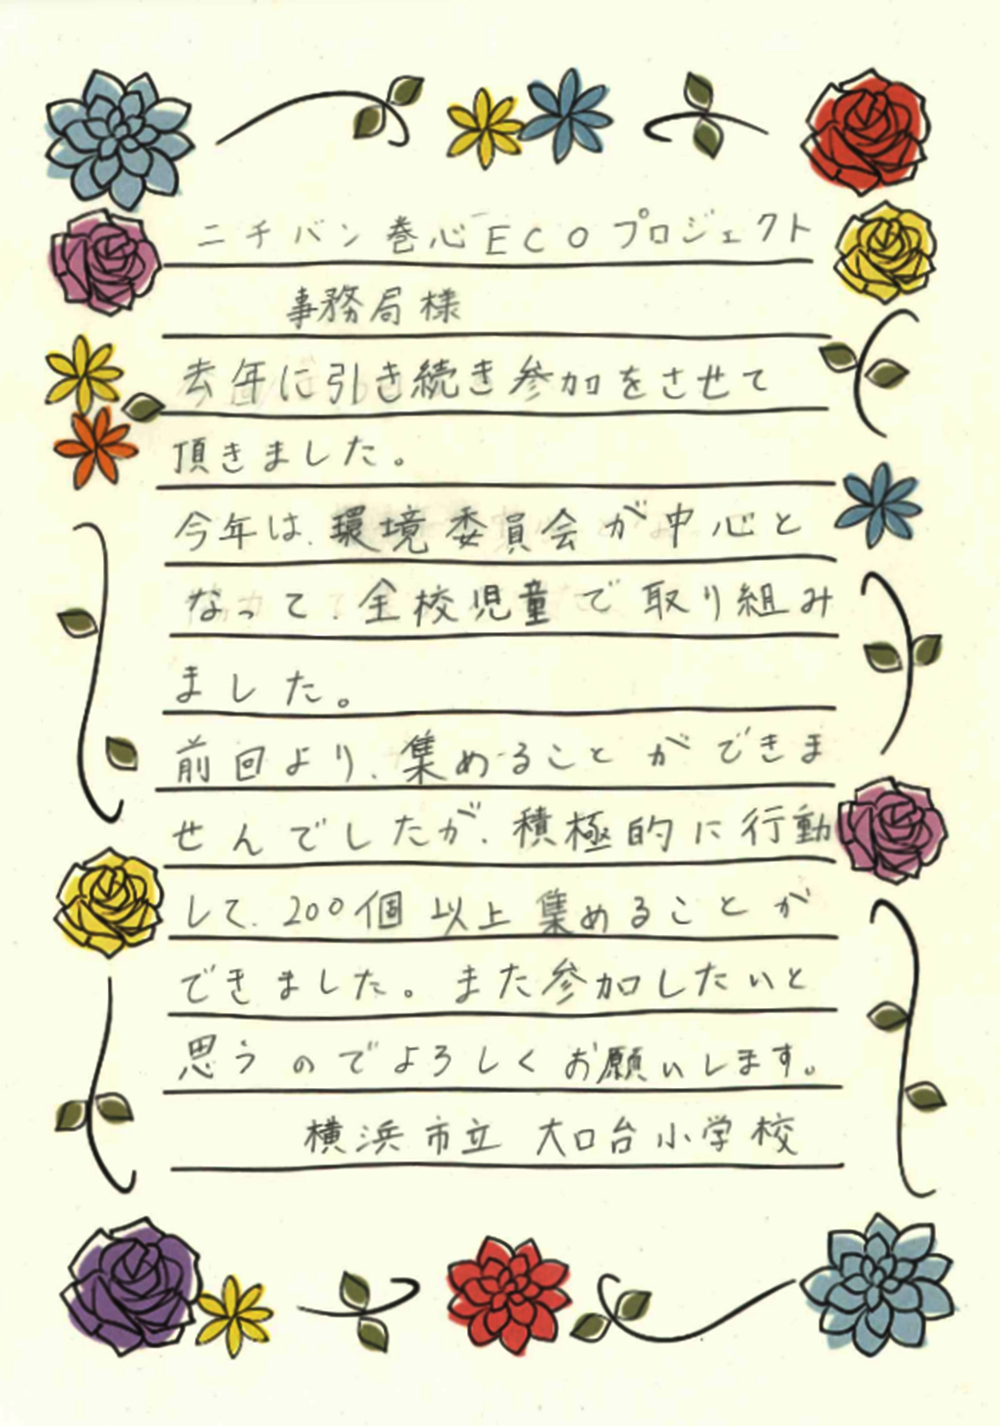 ニチバン巻心ECOプロジェクト
事務局様
去年に引き続き参加をさせて
頂きました。
今年は、環境委員会が中心と
なって、全校児童で取り組み
ました。
前回より、集めることができま
せんでしたが、積極的に行動
して、200個以上集めることが
できました。また参加したいと
思うのでよろしくお願いします。
横浜市立 大口台小学校